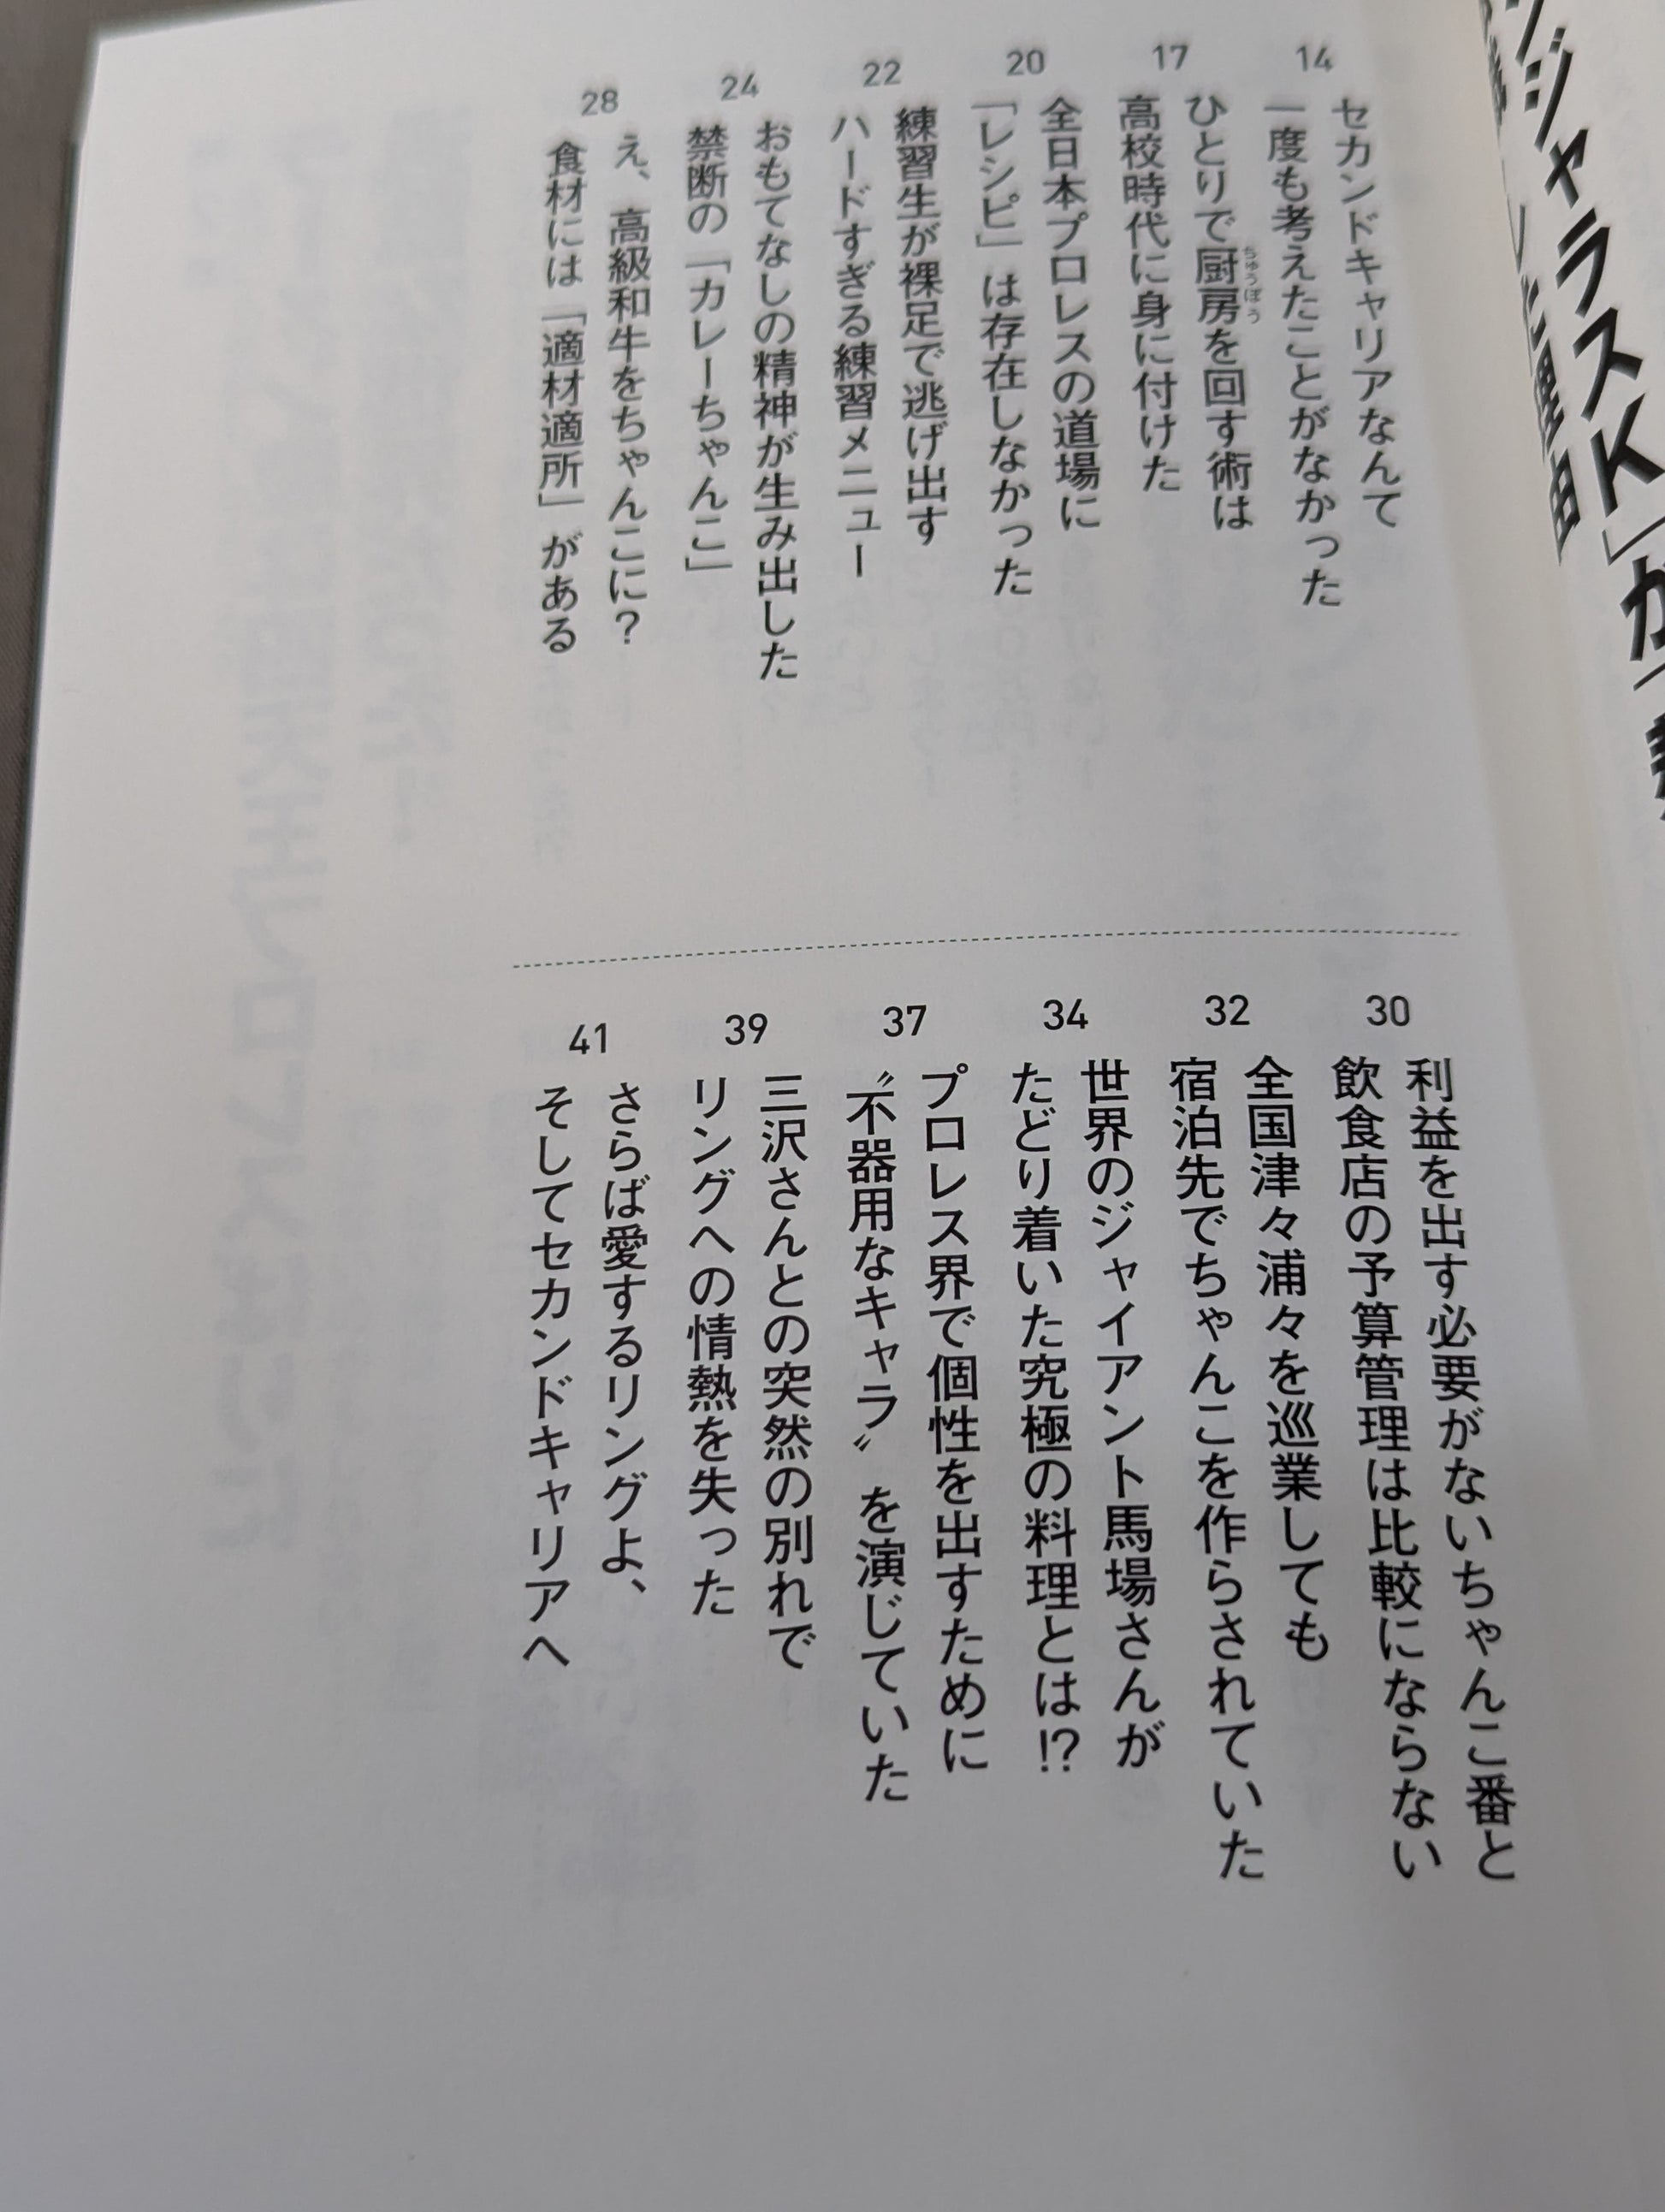 ンジャラスK」が
理由
14
セカンドキャリアなんて
一度も考えたことがなかった
17
ひとりで厨房を回す術は
ちゅうぼう
高校時代に身に付けた
20
全日本プロレスの道場に
「レシピ」は存在しなかった
22
練習生が裸足で逃げ出す
ハードすぎる練習メニュー
24
おもてなしの精神が生み出した
禁断の「カレーちゃんこ」
28
え、高級和牛をちゃんこに?
食材には「適材適所」がある
30
利益を出す必要がないちゃんこ番と
飲食店の予算管理は比較にならない
32
全国津々浦々を巡業しても
宿泊先でちゃんこを作らされていた
34
世界のジャイアント馬場さんが
たどり着いた究極の料理とは!?
37
プロレス界で個性を出すために
〝不器用なキャラ〟を演じていた
39
三沢さんとの突然の別れで
リングへの情熱を失った
41
さらば愛するリングよ、
そしてセカンドキャリアへ